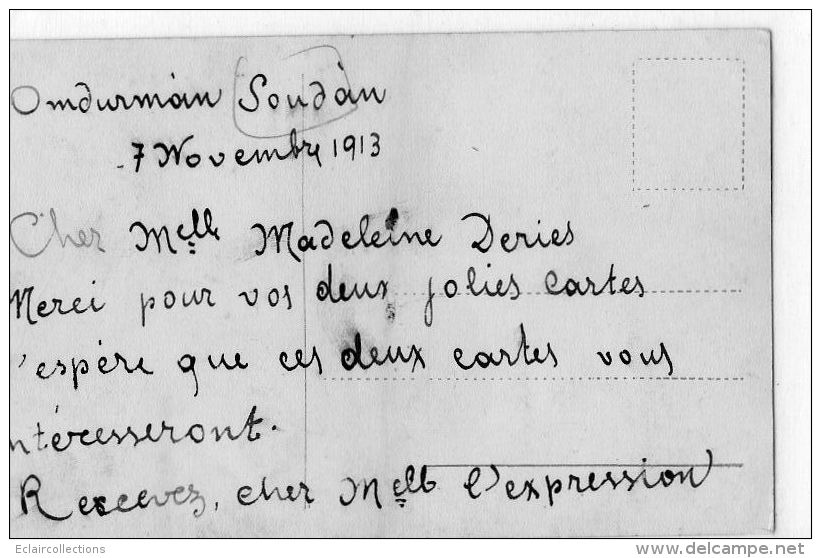 Omdurmán Soudàn
7 Novembre 1913
Cher Melle Madeleine Deries
Merci pour vos deux jolies cartes
'espère que ces deux cartes vous
ntéresseront.
Recevez, cher Melle l'expression
Eclaircollections
delcampe.net